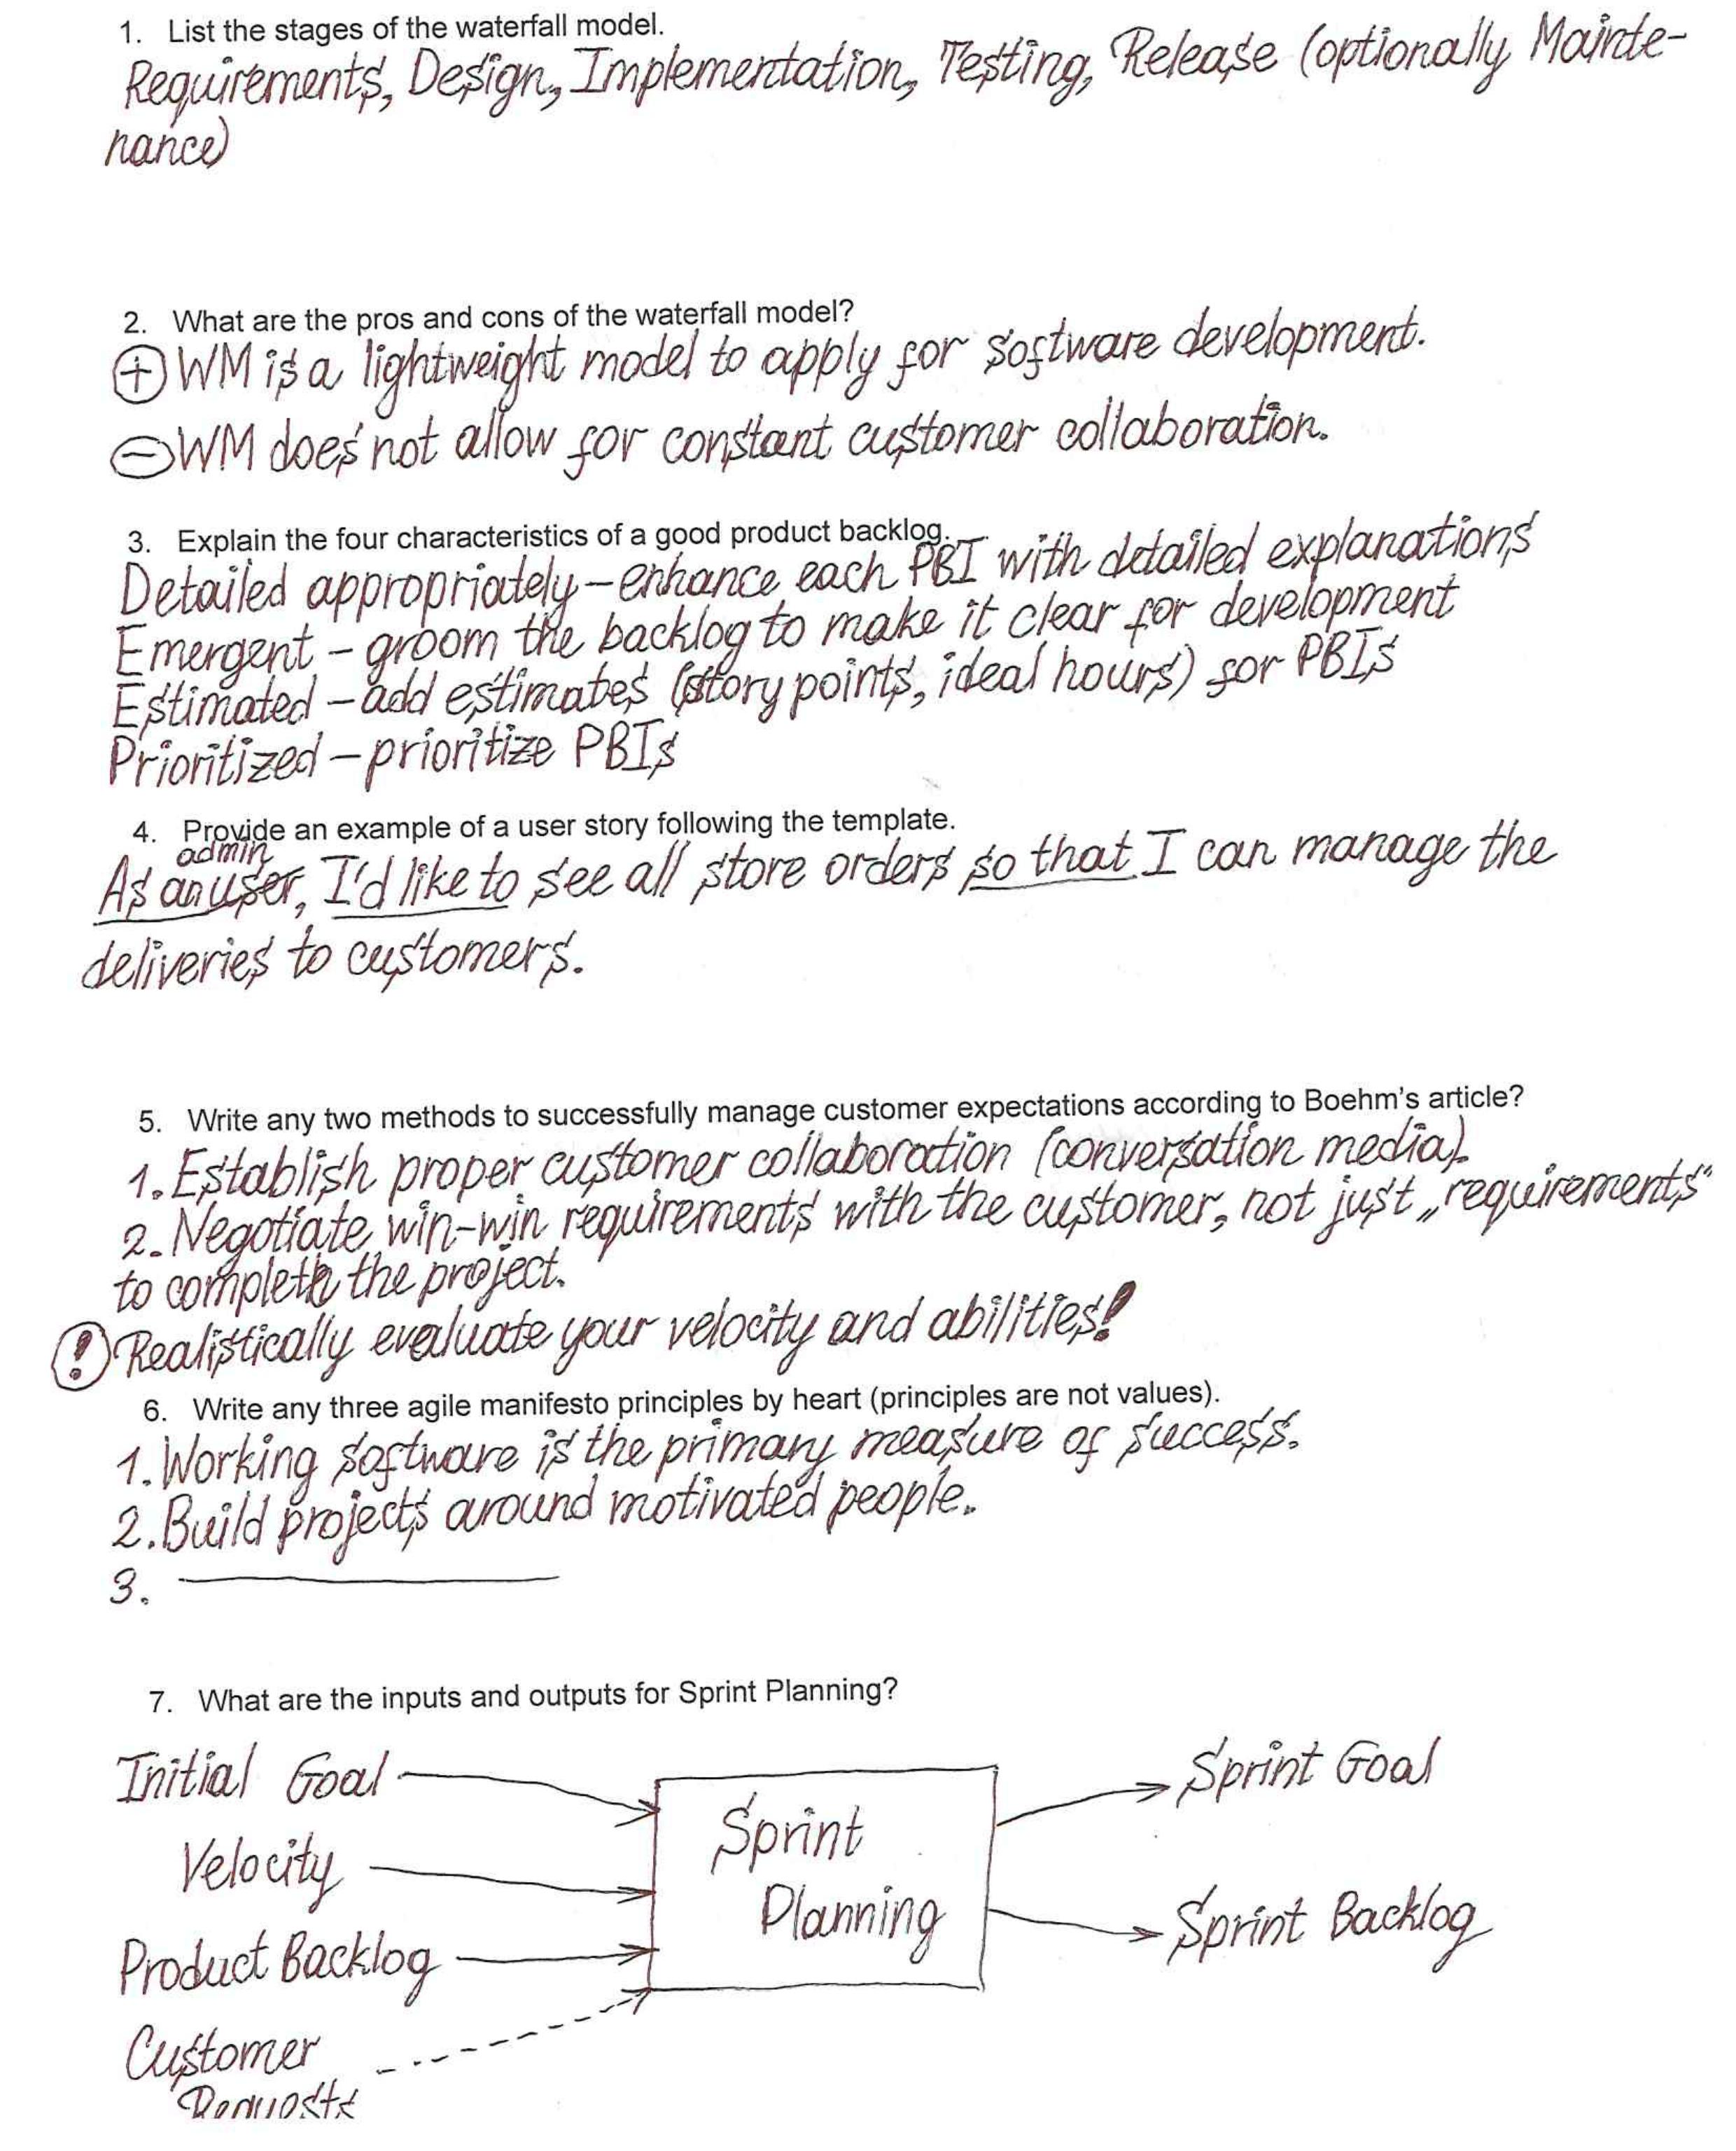 1. List the stages of the waterfall model.
Requirements, Design, Implementation, Testing, Release (optionally Mainte-
nance)
2. What are the pros and cons of the waterfall model?
⊕ WM is a lightweight model to apply for software development.
⊖ WM does not allow for constant customer collaboration.
3. Explain the four characteristics of a good product backlog.
Detailed appropriately – enhance each PBI with detailed explanations
Emergent – groom the backlog to make it clear for development
Estimated – add estimates (story points, ideal hours) for PBIs
Prioritized – prioritize PBIs
4. Provide an example of a user story following the template.
admin
As an user, I'd like to see all store orders so that I can manage the
deliveries to customers.
5. Write any two methods to successfully manage customer expectations according to Boehm's article?
1. Establish proper customer collaboration (conversation media).
2. Negotiate win-win requirements with the customer, not just „requirements“
to complete the project.
! Realistically evaluate your velocity and abilities!
6. Write any three agile manifesto principles by heart (principles are not values).
1. Working software is the primary measure of success.
2. Build projects around motivated people.
3.
7. What are the inputs and outputs for Sprint Planning?
Initial Goal
Sprint Goal
Velocity
Sprint
Planning
Product Backlog
Sprint Backlog
Customer
Requests